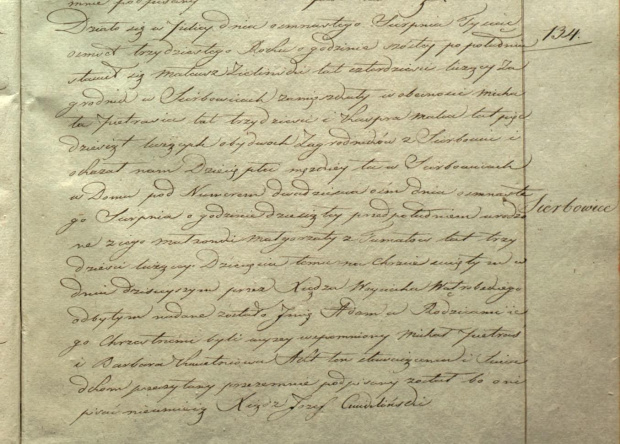 Działo się w Sulicy dnia osmnastego Sierpnia Tysiąc
osmset trzydziestego Roku o godzinie szóstey po południu
stawił się Mateusz Zieliński lat czterdzieści liczący Za
grodnik w Sierbowicach zamieszkały w obecności Micha
ła Pietrasia lat trzydzieści i Kacpra lat pięć
dziesiąt liczących obydwóch Zagrodników z Sierbowic i
okazał nam Dziecię płci męzkiey tu w Sierbowicach
w Domu pod Numerem dwadzieścia osm dnia osmnaste
go Sierpnia o godzinie dziesiątey przed południem urodzo
ne z jego małżonki Małgorzaty z lat trzy
dzieści liczący. Dziecięciu temu na Chrzcie świętym w
dniu dzisieyszym przez Xiędza Woyciecha
odbytym nadane zostało Imię Adam a Rodzicami ie
go Chrzestnemi byli wyzey wspomniony Michał Pietraś
i Barbara Akt ten stawaiącemu i Świa
dkom przeczytany przezemnie podpisany został bo oni
pisać nieumieią Xiądz Józef
134.
Sierbowice